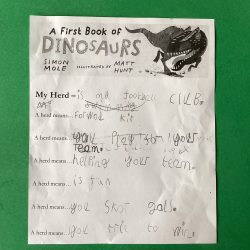 A First Book of
DINOSAURS
SIMON MOLE
ILLUSTRATED BY MATT HUNT
My Herd = is my football CLUB.
A herd means... kit
A herd means... you play for your
team.
A herd means... helping your team.
A herd means... is fun
A herd means... you skor gals.
A herd means... you to win.